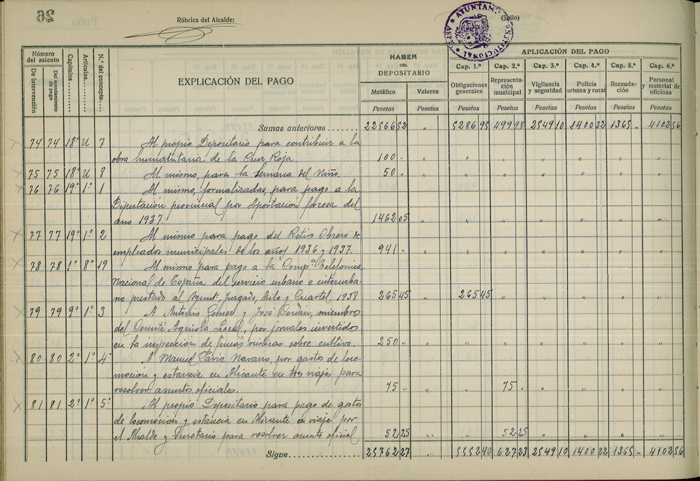 26
Rúbrica del Alcalde:
(Sello)
AYUNTAM CONSTITUCIONAL
Número del asiento
De Intervención
Del mandamiento de pago
Capítulos
Artículos
N.º del concepto
EXPLICACIÓN DEL PAGO
HABER DEL DEPOSITARIO
Metálico
Valores
APLICACIÓN DEL PAGO
Cap. 1.º Obligaciones generales
Cap. 2.º Representación municipal
Cap. 3.º Vigilancia y seguridad
Cap. 4.º Policía urbana y rural
Cap. 5.º Recaudación
Cap. 6.º Personal y material de oficinas
Pesetas Pesetas Pesetas Pesetas Pesetas Pesetas Pesetas Pesetas
Sumas anteriores 22566 52 " 5286 95 499 98 2549 10 1400 22 1365 - 4102 56
74 74 18º U 7 Al propio Depositario para contribuir a la
obra humanitaria de la Cruz Roja. 100 -
75 75 18º U 8 Al mismo, para la Semana del Niño. 50 -
76 76 19º 1º 1 Al mismo, formalizadas, para pago a la
Diputación provincial por Aportación forzosa del
año 1937. 1462 05
77 77 19º 1º 2 Al mismo para pago del Retiro Obrero de
empleados municipales de los años 1936 y 1937. 941 -
78 78 1º 8º 19 Al mismo para pago a la Compª Telefónica
Nacional de España del servicio urbano e interurba-
no prestado al Aymtº, Juzgado, Asilo y Cuartel, 1938 265 45 " 265 45
79 79 9º 1º 3 A Antonio y José miembros
del Comité Agrícola Local, por jornales invertidos
en la inspección de fincas rústicas sobre cultivo. 250 -
80 80 2º 1º 4º A Manuel Navarro, por gastos de loco-
moción y estancia en Alicante en tres viajes para
resolver asuntos oficiales. 75 - " " 75 -
81 81 2º 1º 5º Al propio Depositario para pago de gastos
de locomoción y estancia en Alicante en viaje por
el Alcalde y Secretario para resolver asunto oficial 52 25 52 25
Sigue 25762 27 " 5552 40 627 23 2549 10 1400 22 1365 - 4102 56